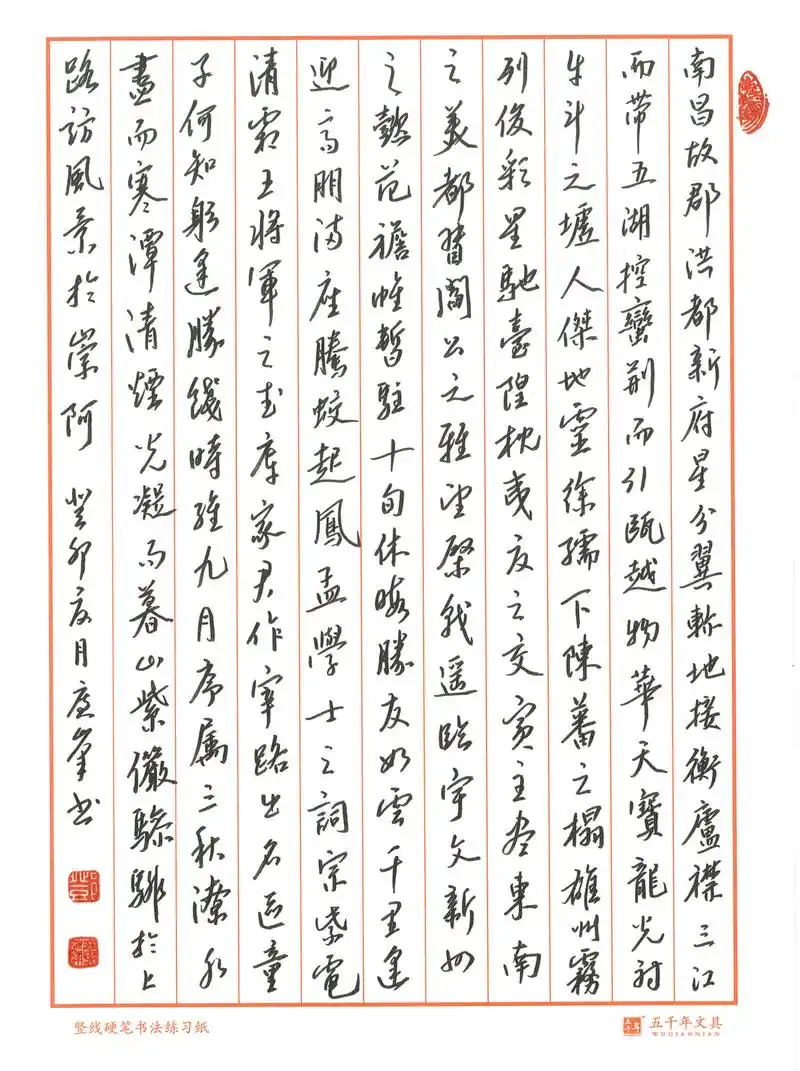 南昌故郡洪都新府星分翼軫地接衡廬襟三江
而帶五湖控蠻荆而引甌越物華天寶龍光射
牛斗之墟人傑地靈徐孺下陳蕃之榻雄州霧
列俊彩星馳臺隍枕夷夏之交賓主盡東南
之美都督閻公之雅望棨戟遥臨宇文新州
之懿范襜帷暫駐十旬休暇勝友如雲千里逢
迎高朋满座騰蛟起鳳孟學士之詞宗紫電
清霜王將軍之武庫家君作宰路出名區童
子何知躬逢勝餞時維九月序屬三秋潦水
盡而寒潭清煙光凝而暮山紫儼驂騑於上
路訪風景於崇阿 癸卯夏月 峯书
竖线硬笔书法练习纸
五千年文具
WUQIANNIAN